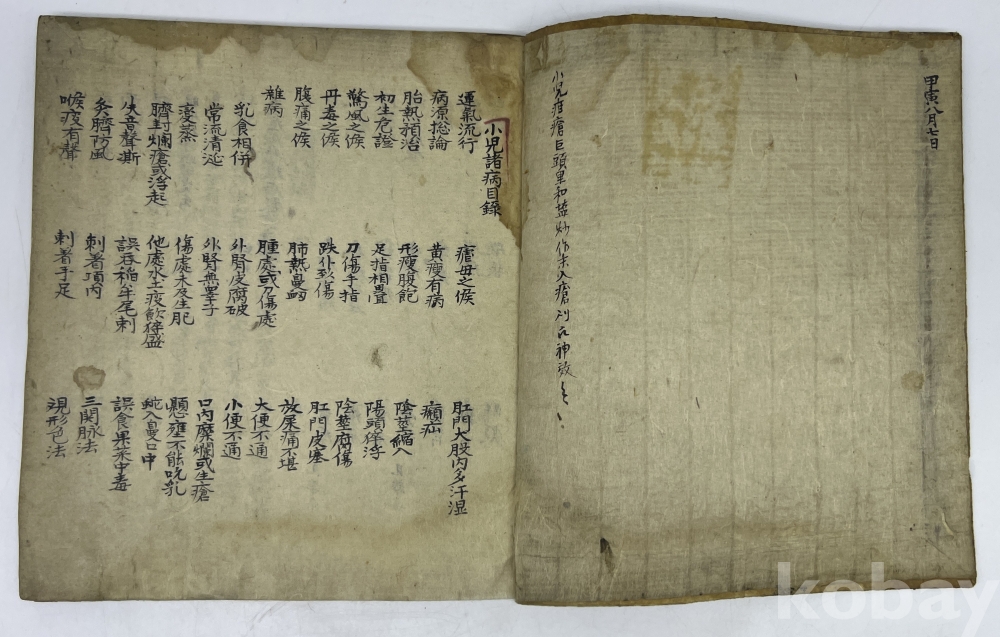 甲寅八月七日
小児疳瘡巨頭里和盐炒作末入瘡則亦神效
小児諸病目録
運氣流行
病源総論
胎熱預治
初生危證
驚風之候
丹毒之候
腹痛之候
雜病
乳食相併
常流清涎
變蒸
臍封爛瘡或浮起
失音聲嘶
灸臍防風
喉疫有聲
瘧母之候
黄瘦有病
形瘦腹飽
足指相疊
刀傷手指
跌仆致傷
肺熱鼻衄
腫處或刀傷處
外腎皮腐破
外腎無睾子
傷處未及生肥
他處水土疫飲猝盛
誤吞稲牟尾刺
刺着項内
刺着手足
肛門大股内多汗湿
癩疝
陰莖縮入
陽頭痒浮
陰莖腐傷
肛門皮塞
放屎痛不堪
大便不通
小便不通
口内糜爛或生瘡
懸壅不能吮乳
入鼻口中
誤食果菜中毒
三関脉法
現形色法
kobay